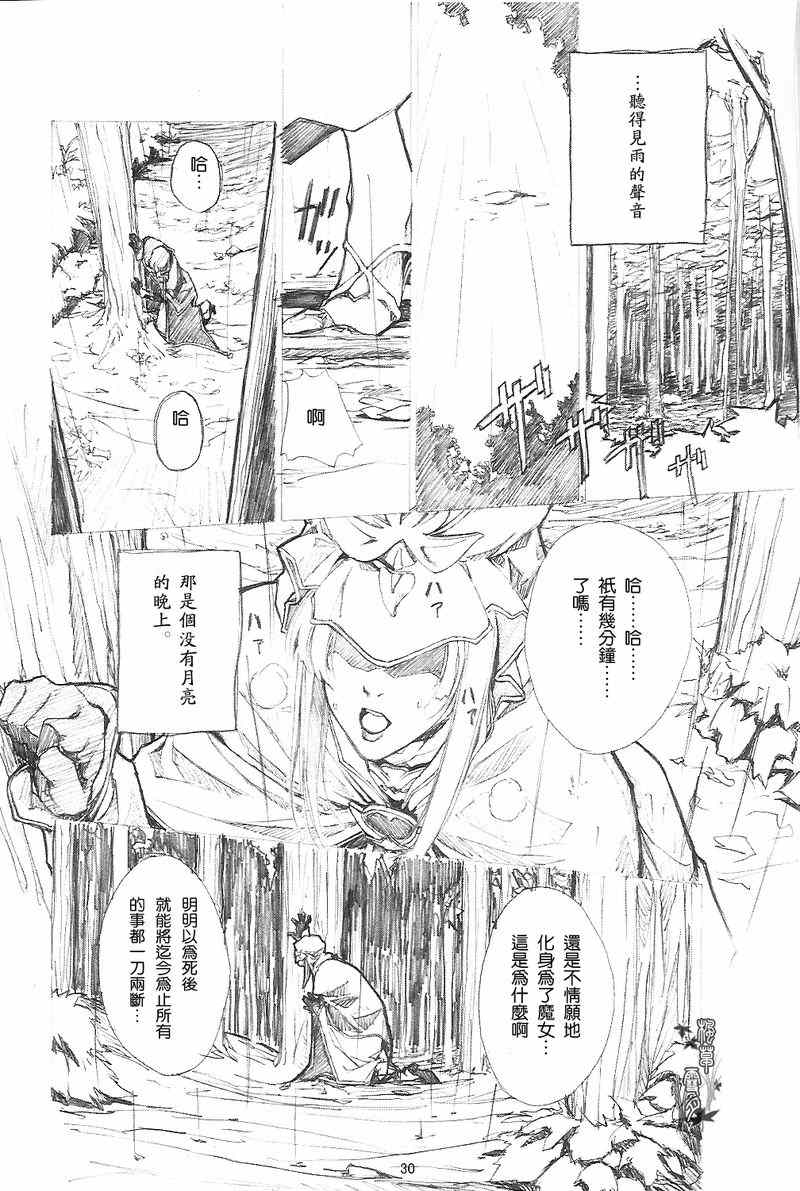 …聽得見雨的聲音
ザザザザ
ガッ
啊
哈…
哈
哈……哈……
衹有幾分鐘……
了嗎……
ハァ
ハァ
ハァ
那是個没有月亮
的晚上。
還是不情願地
化身爲了魔女…
這是爲什麼啊
明明以爲死後
就能將迄今爲止所有
的事都一刀兩斷…
30